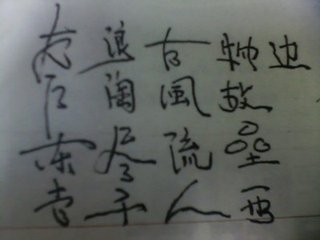 大江东去
浪淘尽千
古風流人
物故垒西
边